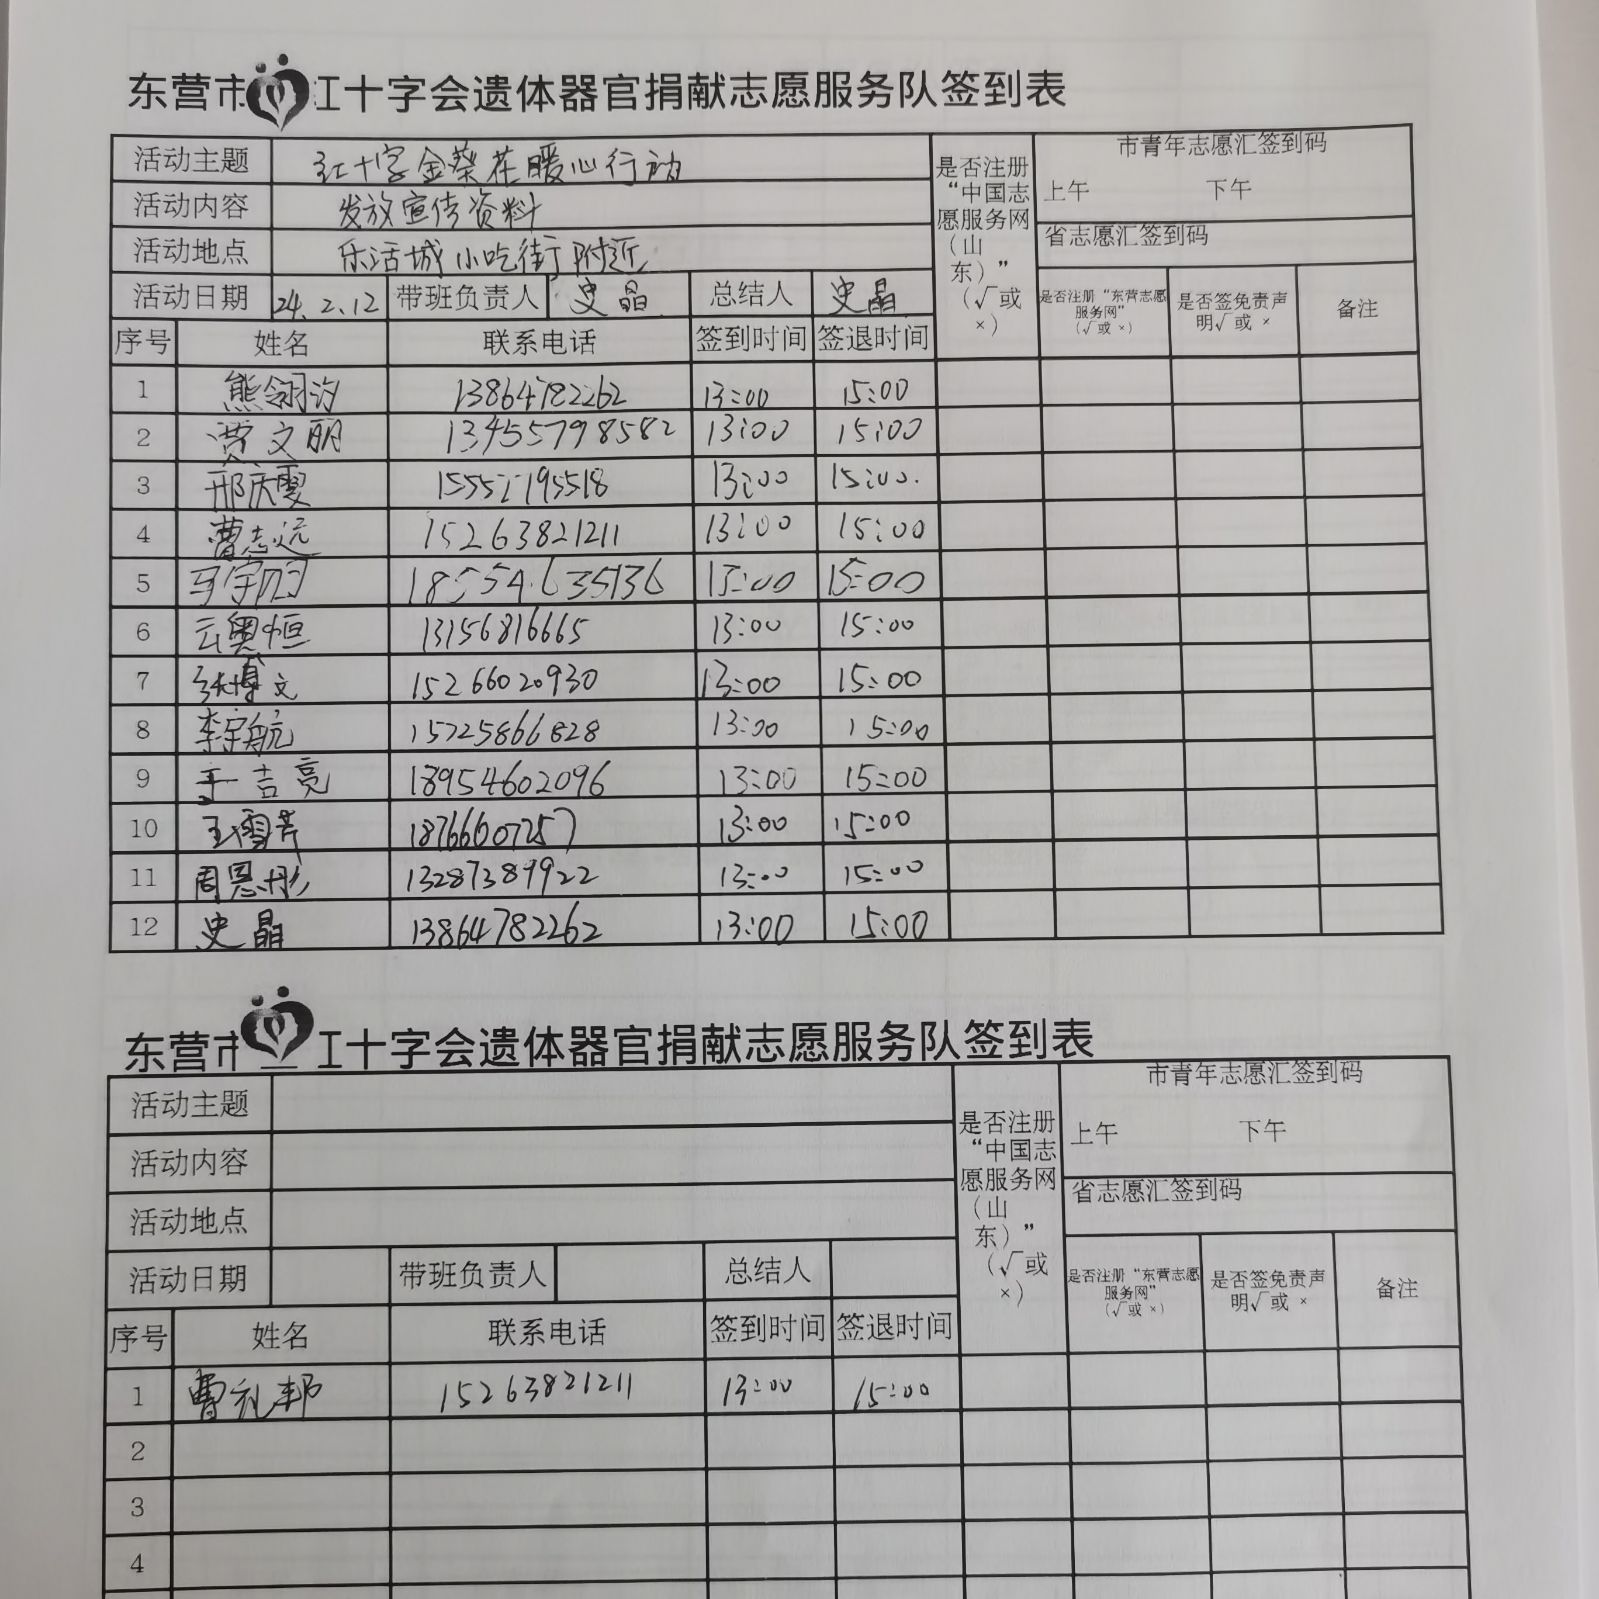 东营市红十字会遗体器官捐献志愿服务队签到表
活动主题 红十字金葵花暖心行动 是否注册“中国志愿服务网（山东）”（√或×） 市青年志愿汇签到码
上午 下午
活动内容 发放宣传资料
省志愿汇签到码
活动地点 乐活城小吃街附近
活动日期 24.2.12 带班负责人 史晶 总结人 史晶 是否注册“东营志愿服务网”（√或×） 是否签免责声明√或× 备注
序号 姓名 联系电话 签到时间 签退时间
1 熊翎汐 13864782262 13:00 15:00
2 贾文朋 13455798582 13:00 15:00
3 邢庆雯 13:00 15:00.
4 曹志远 15263821211 13:00 15:00
5 18554635136 13:00 15:00
6 云奥恒 13156816665 13:00 15:00
7 张博文 15266020930 13:00 15:00
8 李宇航 15725866828 13:00 15:00
9 于吉亮 18954602096 13:00 15:00
10 王雪芹 18766607257 13:00 15:00
11 周恩彤 13287389922 13:00 15:00
12 史晶 13864782262 13:00 15:00
东营市 工十字会遗体器官捐献志愿服务队签到表
活动主题 是否注册“中国志愿服务网（山东）”（√或×） 市青年志愿汇签到码
上午 下午
活动内容
省志愿汇签到码
活动地点
活动日期 带班负责人 总结人 是否注册“东营志愿服务网”（√或×） 是否签免责声明√或× 备注
序号 姓名 联系电话 签到时间 签退时间
1 曹礼邦 15263821211 13:00 15:00
2
3
4